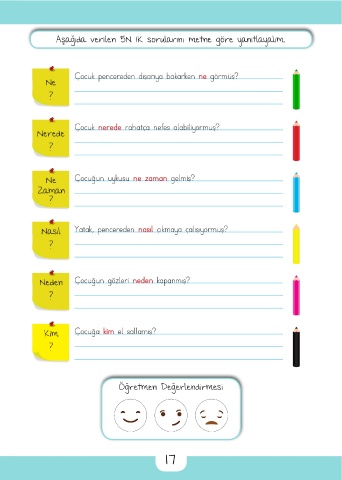 Aşağıda verilen 5N 1K sorularını metne göre yanıtlayalım.
Ne
?
Çocuk pencereden dışarıya bakarken ne görmüş?
Nerede
?
Çocuk nerede rahatça nefes alabiliyormuş?
Ne
Zaman
?
Çocuğun uykusu ne zaman gelmiş?
Nasıl
?
Yatak, pencereden nasıl çıkmaya çalışıyormuş?
Neden
?
Çocuğun gözleri neden kapanmış?
Kim
?
Çocuğa kim el sallamış?
Öğretmen Değerlendirmesi
17